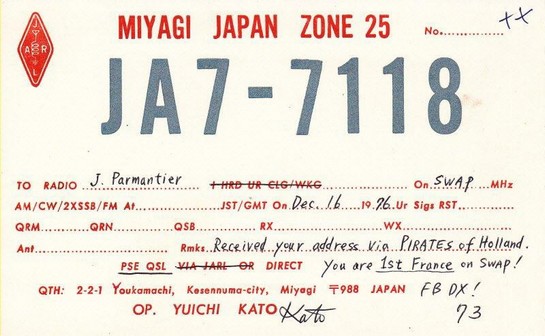 MIYAGI JAPAN ZONE 25 No. ++
JARL
JA7-7118
TO RADIO J. Parmantier I HRD UR CLG/WKG On SWAP MHz
AM/CW/2XSSB/FM At JST/GMT On Dec. 16 1976 Ur Sigs RST
QRM QRN QSB RX WX
Ant Rmks. Received your address via PIRATES of Holland.
PSE QSL VIA JARL OR DIRECT You are 1st France on SWAP!
QTH: 2-2-1 Youkamachi, Kesennuma-city, Miyagi 〒988 JAPAN FB DX!
OP. YUICHI KATO Kato 73